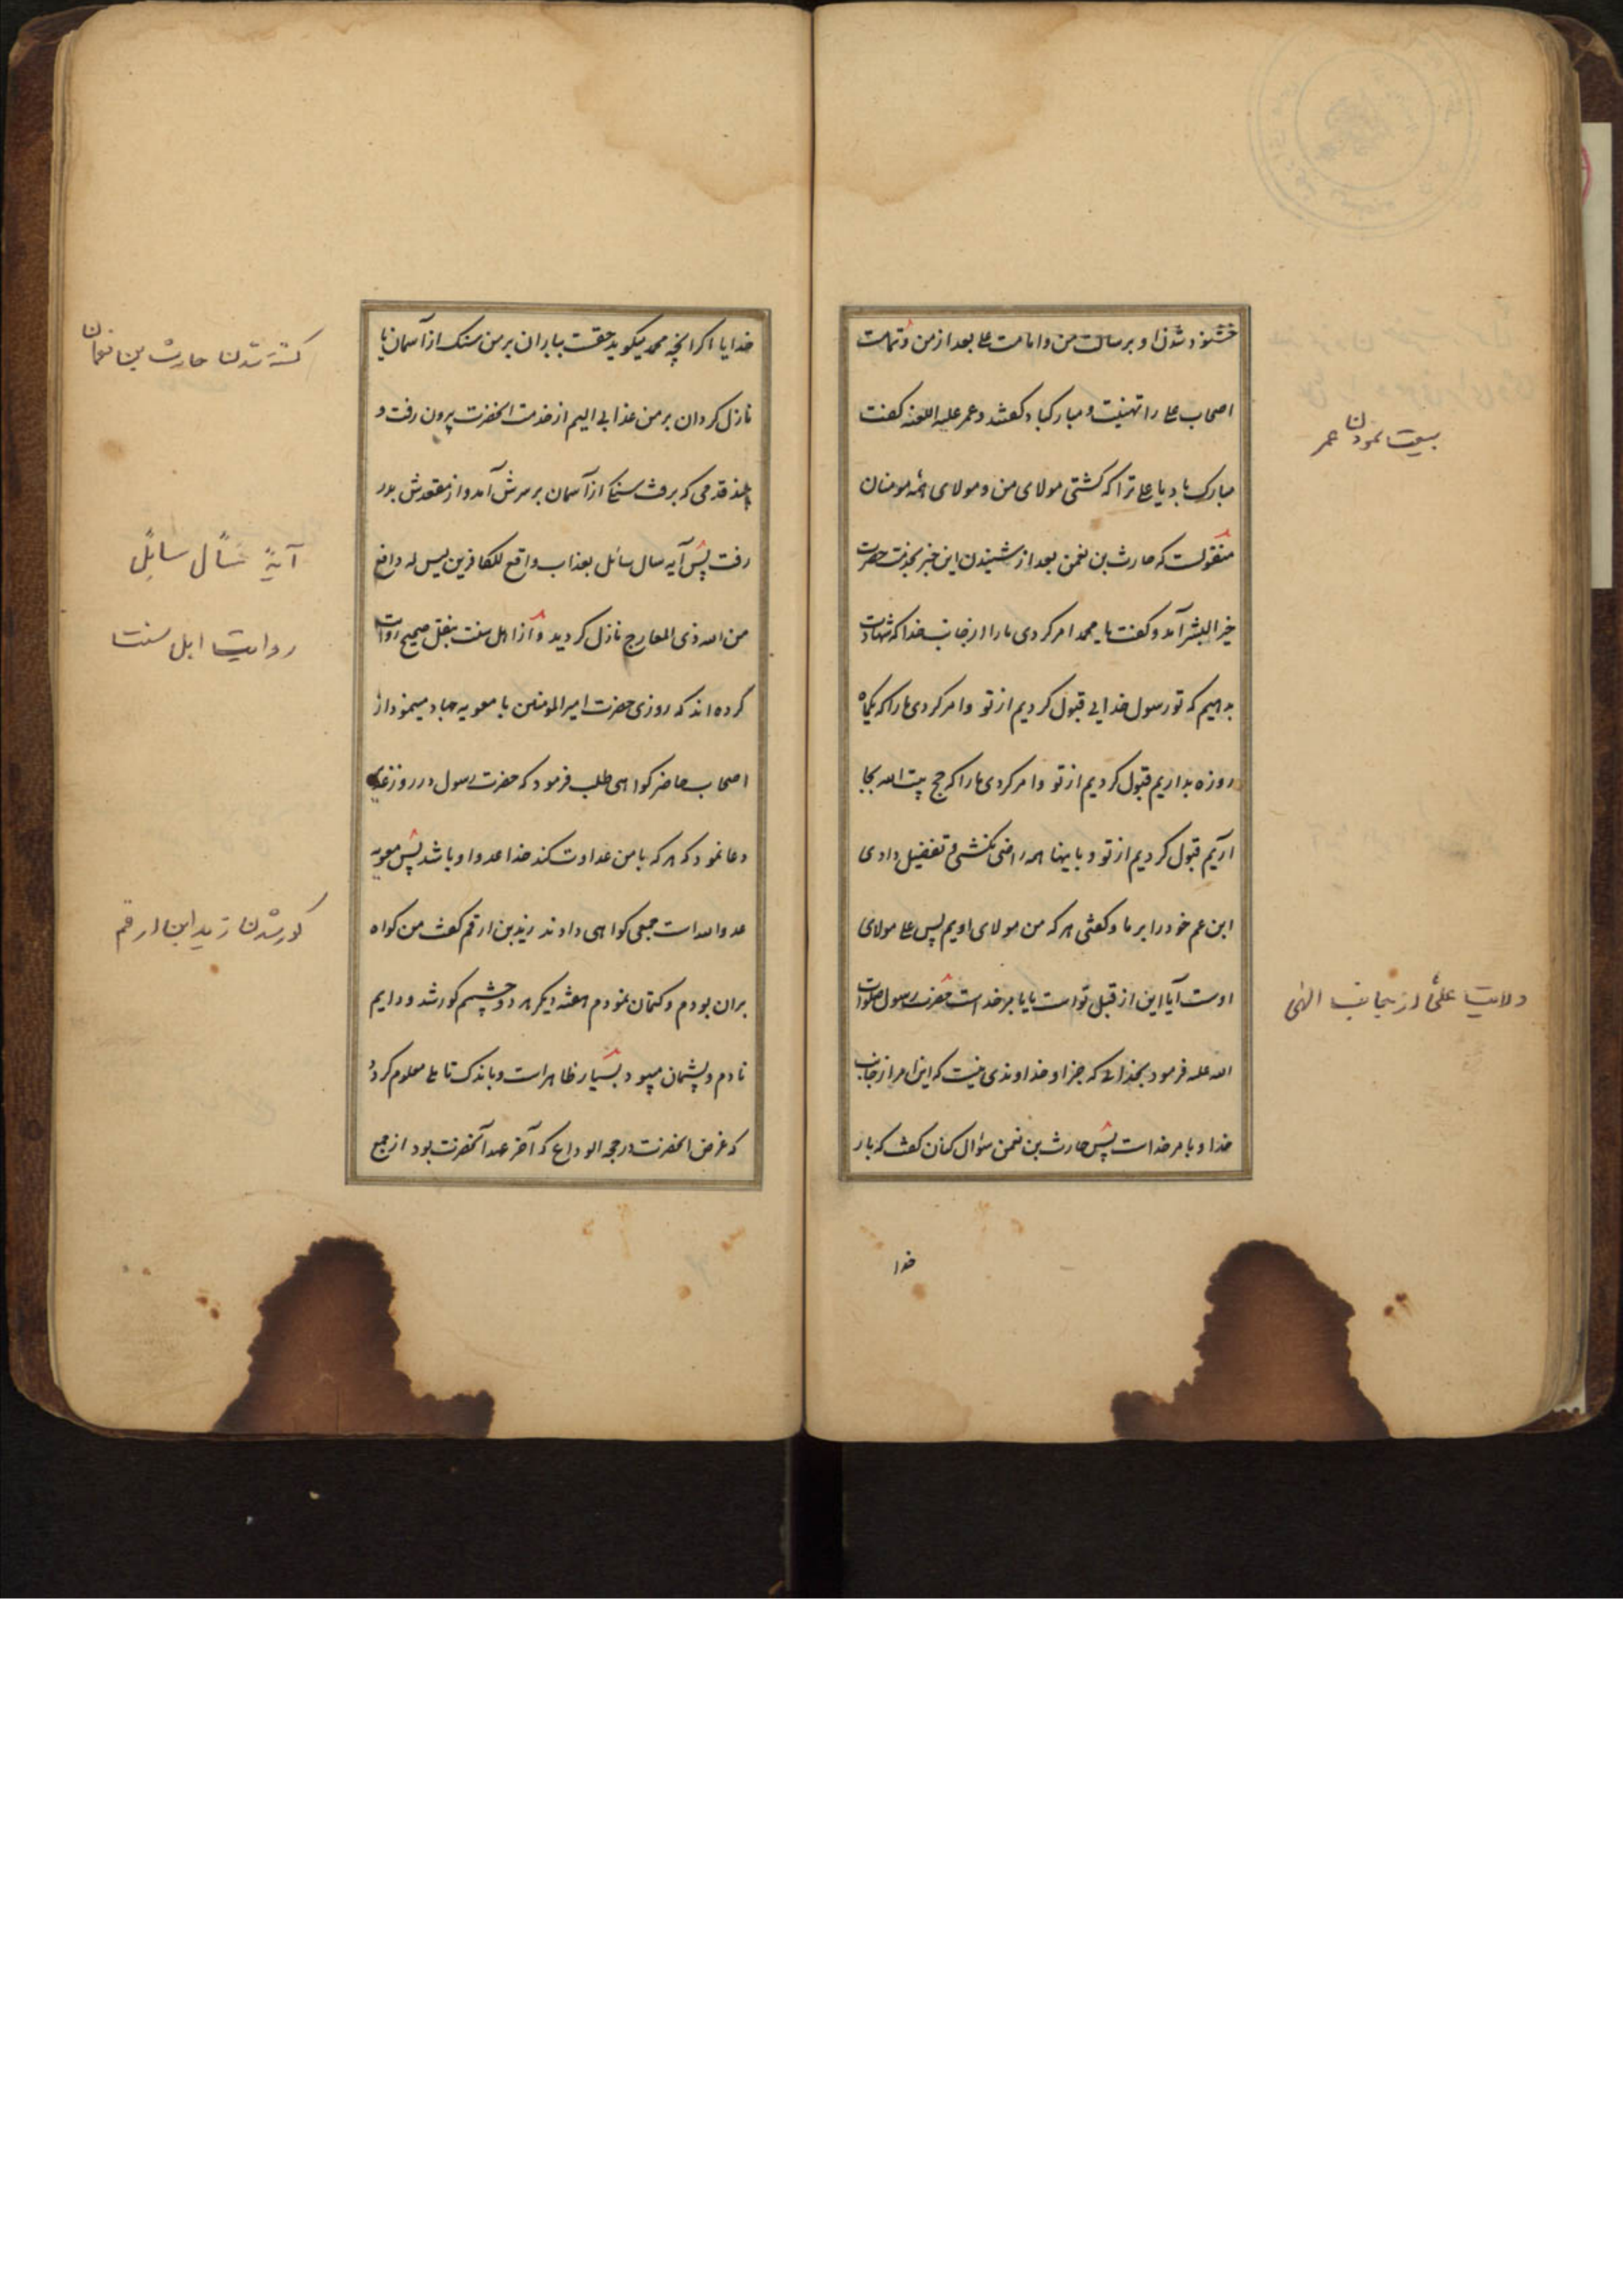 خشنود شدن او برسالت من و امامت علی بعد از من و تمامت
اصحاب علی را تهنیت و مبارکباد کفتند و عمر علیه اللعنه کفت
مبارک باد یا علی ترا که کشتی مولای من و مولای همه مومنان
منقولست که حارث بن نعمن بعد از شنیدن این خبر بخدمت حضرت
خیر البشر آمد و کفت یا محمد امر کردی ما را از جانب خدا که شهادت
بدهیم که تو رسول خدایی قبول کردیم از تو و امر کردی ما را که یکماه
روزه بداریم قبول کردیم از تو و امر کردی ما را که حج بیت الله بجا
آریم قبول کردیم از تو و باینها همه راضی نکشتی و تفضیل دادی
ابن عم خود را بر ما و کفتی هر که من مولای اویم پس علی مولای
اوست آیا این از قبل تو است یا بامر خداست حضرت رسول صلوات
الله علیه فرمود بخدائی که جز او خداوندی نیست که این امر از جانب
خدا و بامر خداست پس حارث بن نعمن سؤال کنان کفت که بار
خدا
بیعت نمودن عمر
ولایت علی از جانب الهی
خدایا اکر آنچه محمد میکوید حقست بباران بر من سنک از آسمان یا
نازل کردان بر من عذابی الیم از خدمت آنحضرت بیرون رفت و
قدمی که برفت سنکی از آسمان بر سرش آمد و از مقعدش بدر
رفت پس آیه سال سائل بعذاب واقع للکافرین لیس له دافع
من الله ذی المعارج نازل کردید و از اهل سنت بنقل صحیح روایت
کرده اند که روزی حضرت امیر المومنین با معویه جهاد مینمود از
اصحاب حاضر کواهی طلب فرمود که حضرت رسول در روز غدیر
دعا نمود که هر که با من عداوت کند خدا عدو او باشد پس معویه
عدو الله است جمعی کواهی دادند زید بن ارقم کفت من کواه
بر آن بودم و کتمان نمودم هفته دیکر هر دو چشمم کور شد و دایم
نادم و پشیمان میبود بسیار ظاهر است و باندک تاملی معلوم کردد
که غرض آنحضرت در حجه الوداع که آخر عهد آنحضرت بود از جمع
کشته شدن حارث بن نعمان
آیهٔ سأل سایل
روایت اهل سنت
کور شدن زید ابن ارقم